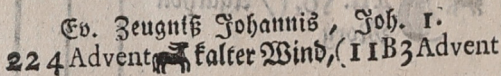 Ev. Zeugniß Johannis, Joh. 1.
224 Advent kalter Wind, (11B3Advent